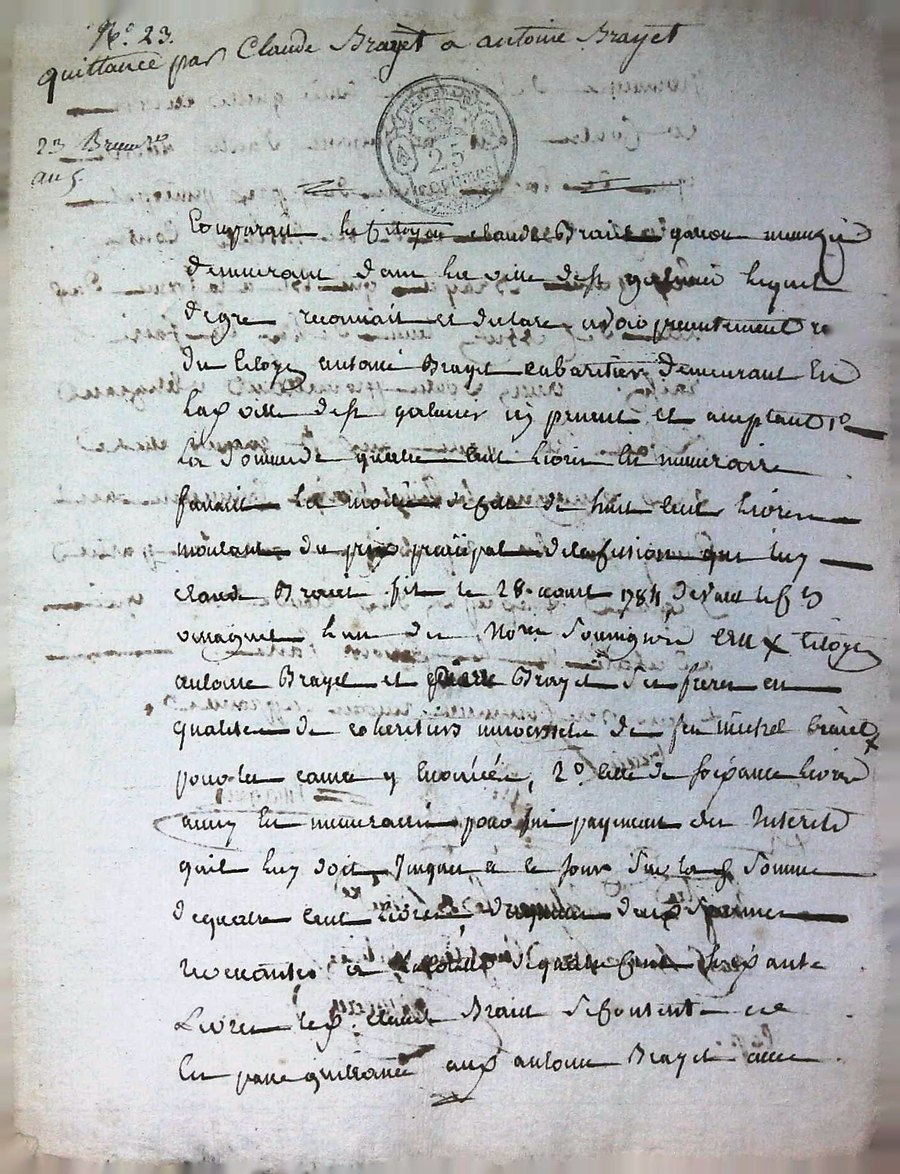 N°. 23.
quittance par Claude Brayet a antoine Brayet
23 Brum.re
an 5.
25
centimes
Comparait le Citoyen claude Braiet garcon
demeurant dans la ville de st galmier lequel
degre reconnait et declare avoir presentement re
du Citoyen antoine Brayet cabaretier demeurant en
la d ville de st galmier icy present et acceptant 1°
la somme de quatre cent livres en numeraire
faisant la moitié de celle de huit cent livres
montant du prix principal de la cession que luy
claude Braiet fit le 28 aout 1784 devant
l'un des No.res soussignés au x Citoyen
antoine Brayet et pierre Brayet ses freres en
qualité de coheritiers universels de feu michel braiet
pour les causes y enoncées, 2° celle de soixante livres
aussy en numeraire pour fin payement des interets
qu'il luy doit jusques à ce jour sur la d somme
de quatre cent livres deux sommes
revenantes a celle de quatre cent soixante
Livres led. claude Braiet se contente et
en passe quittance aud antoine Brayet avec